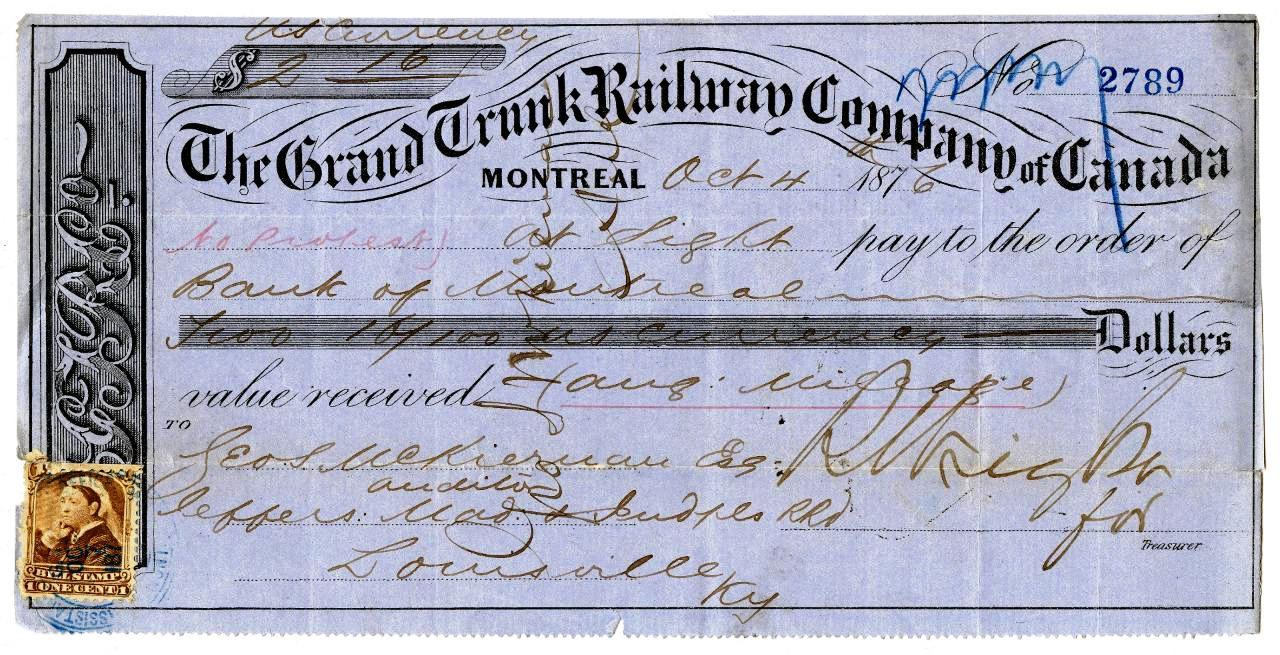 US Currency
$ 2 16
No 2789
The Grand Trunk Railway Company of Canada
MONTREAL Oct 4th 1876
No Protest) At Sight pay to the order of
Bank of Montreal
Two 16/100 US Currency Dollars
value received (Aug. Mileage)
TO
Geo S McKiernan Esq
Auditor
Jeffers. Mad & Indpls RRd for
Treasurer
Louisville
Ky
G.T.R. Co.
BILL STAMP
ONE CENT